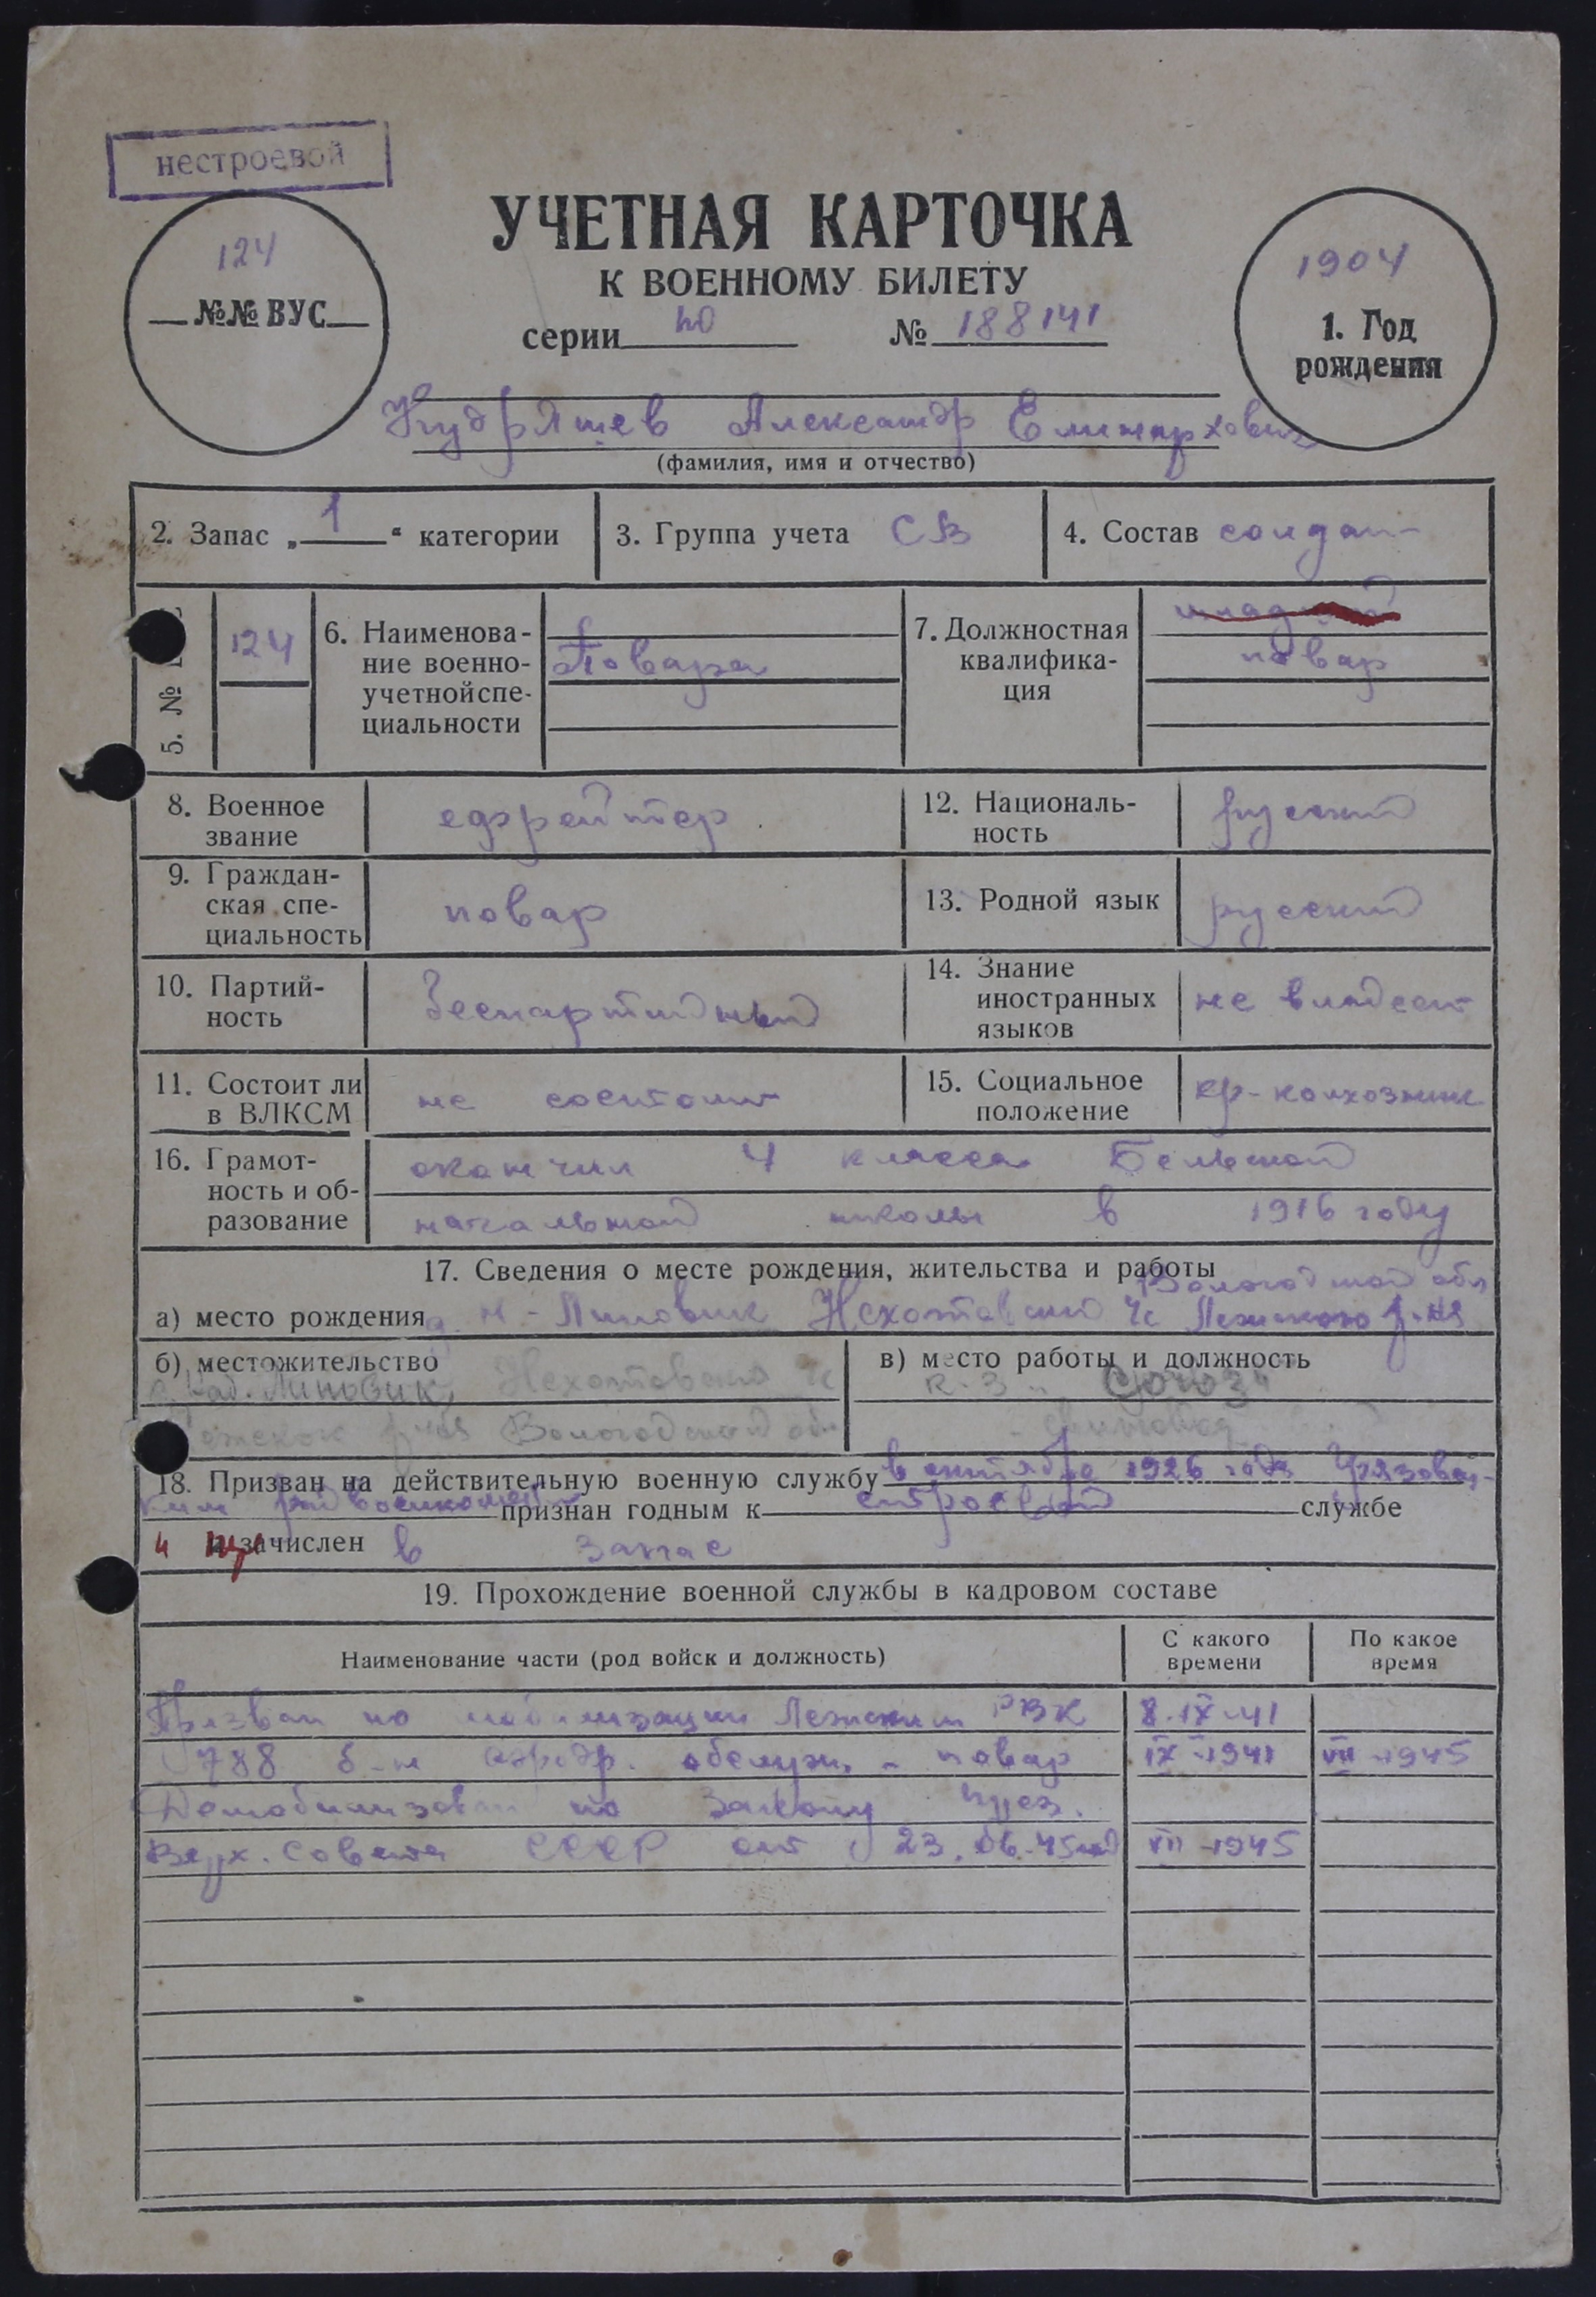 нестроевой
УЧЕТНАЯ КАРТОЧКА
К ВОЕННОМУ БИЛЕТУ
124
№№ ВУС
серии № 188141
1904
1. Год
рождения
Кудряшев Александр
(фамилия, имя и отчество)
2. Запас „ 1 “ категории
3. Группа учета СВ
4. Состав солдат
5. №
124
6. Наименова-
ние военно-
учетной спе-
циальности
Повара
7. Должностная
квалифика-
ция
повар
8. Военное
звание
ефрейтор
12. Националь-
ность
русский
9. Граждан-
ская спе-
циальность
повар
13. Родной язык
русский
10. Партий-
ность
беспартийный
14. Знание
иностранных
языков
не владеет
11. Состоит ли
в ВЛКСМ
не состоит
15. Социальное
положение
кр-колхозник
16. Грамот-
ность и об-
разование
окончил 4 класса Бельской
начальной школы в 1916 году
17. Сведения о месте рождения, жительства и работы
Вологодской обл
а) место рождения д. Н-Липовик Нехотовский с/с Лежского р-на
б) местожительство
Липовик, Нехотовский с/с
р-на Вологодской обл
в) место работы и должность
К-З "Союз"
18. Призван на действительную военную службу в октябре 1926 года Грязовец-
ким райвоенкоматом признан годным к строевой службе
и зачислен в запас
19. Прохождение военной службы в кадровом составе
Наименование части (род войск и должность)
С какого
времени
По какое
время
Призван по мобилизации Лежским РВК 8-IX-41
788 б-н аэродр. обслуж. - повар IX-1941 VII-1945
Демобилизован по Закону През.
Верх. Совета СССР от 23.06.45 VII-1945